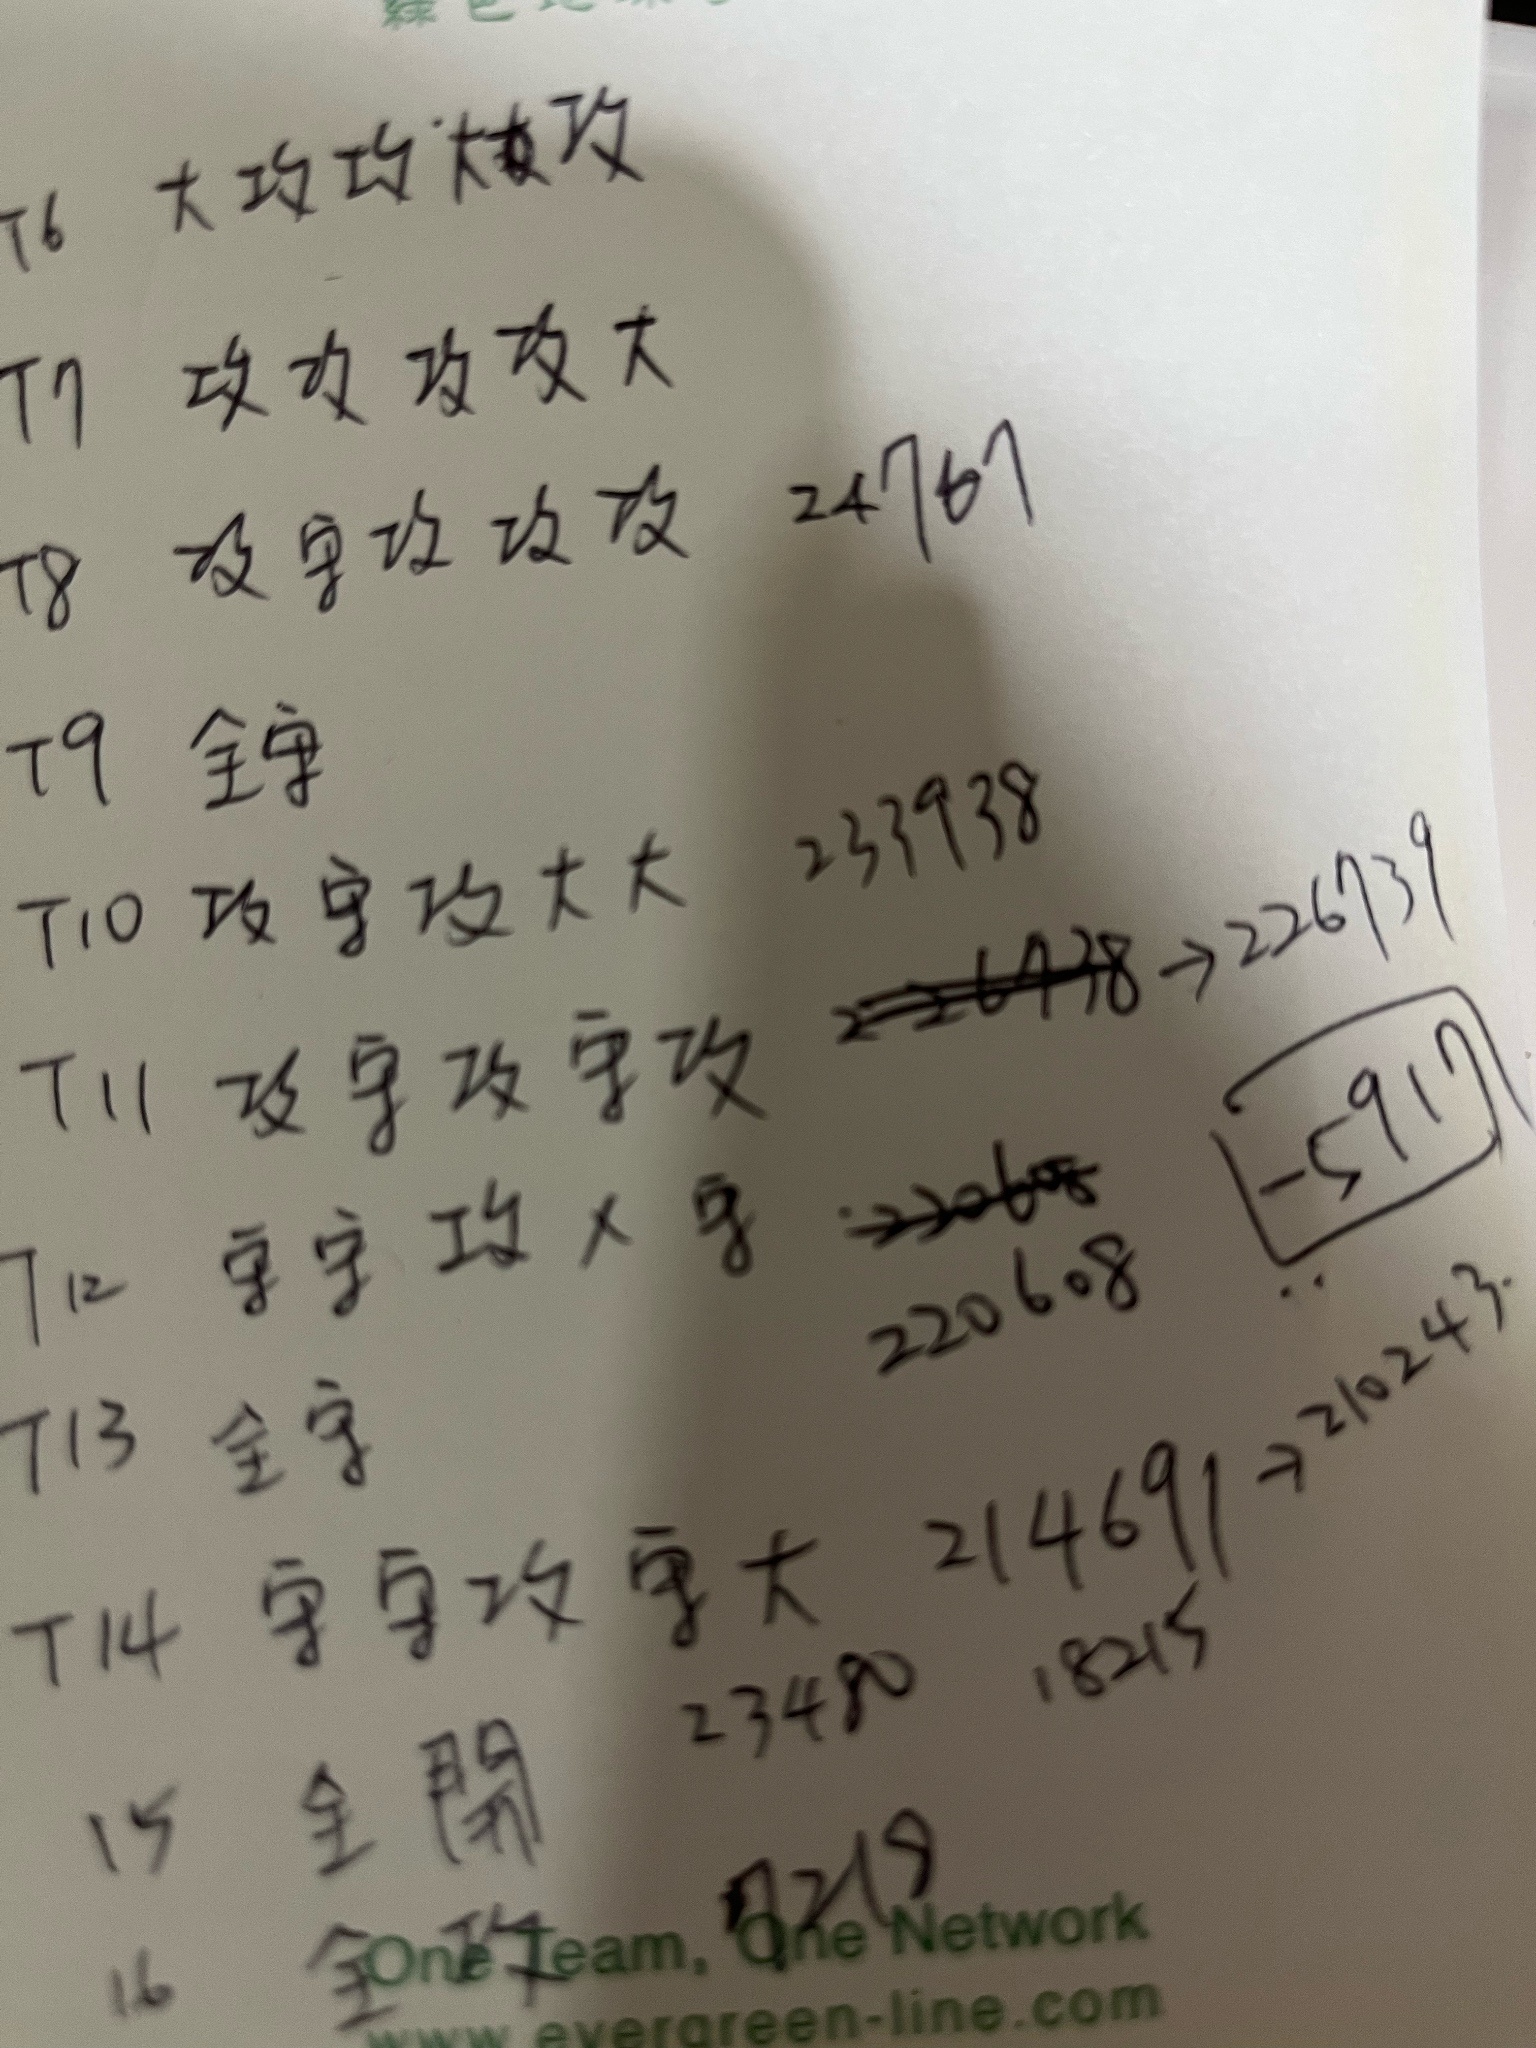 T6 大攻攻大攻
T7 攻攻攻攻大
T8 攻守攻攻攻 24767
T9 全守
T10 攻守攻大大 233938
T11 攻守攻守攻 226738 → 226739
-5917
T12 守守攻 x 守 220608
220608
T13 全守
T14 守守攻守大 214691 → 210243
15 全開 23480 18215
16 全攻 7218
One Team, One Network
www.evergreen-line.com